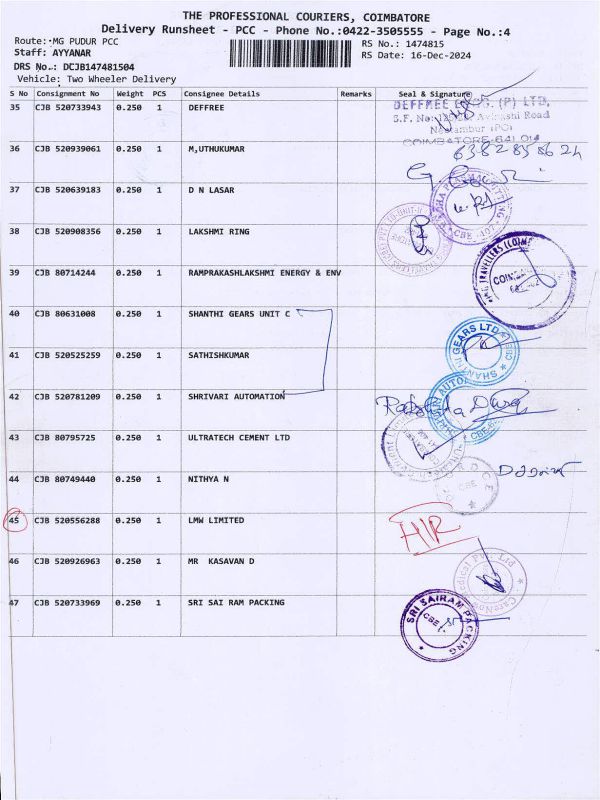 THE PROFESSIONAL COURIERS, COIMBATORE
Delivery Runsheet - PCC - Phone No.:0422-3505555 - Page No.:4
Route: MG PUDUR PCC RS No.: 1474815
Staff: AYYANAR RS Date: 16-Dec-2024
DRS No.: DCJB147481504
Vehicle: Two Wheeler Delivery
S No Consignment No Weight PCS Consignee Details Remarks Seal & Signature
35 CJB 520733943 0.250 1 DEFFREE
DEFFREE (P) LTD,
S.F. No: Road
(PO)
COIMBATORE-641 014
36 CJB 520939061 0.250 1 M,UTHUKUMAR 6382858624
37 CJB 520639183 0.250 1 D N LASAR
38 CJB 520908356 0.250 1 LAKSHMI RING
39 CJB 80714244 0.250 1 RAMPRAKASHLAKSHMI ENERGY & ENV
40 CJB 80631008 0.250 1 SHANTHI GEARS UNIT C
41 CJB 520525259 0.250 1 SATHISHKUMAR
SHANTHI GEARS LTD
42 CJB 520781209 0.250 1 SHRIVARI AUTOMATION
43 CJB 80795725 0.250 1 ULTRATECH CEMENT LTD
44 CJB 80749440 0.250 1 NITHYA N
45 CJB 520556288 0.250 1 LMW LIMITED
46 CJB 520926963 0.250 1 MR KASAVAN D
47 CJB 520733969 0.250 1 SRI SAI RAM PACKING
SRI SAIRAM PACKING
CBE